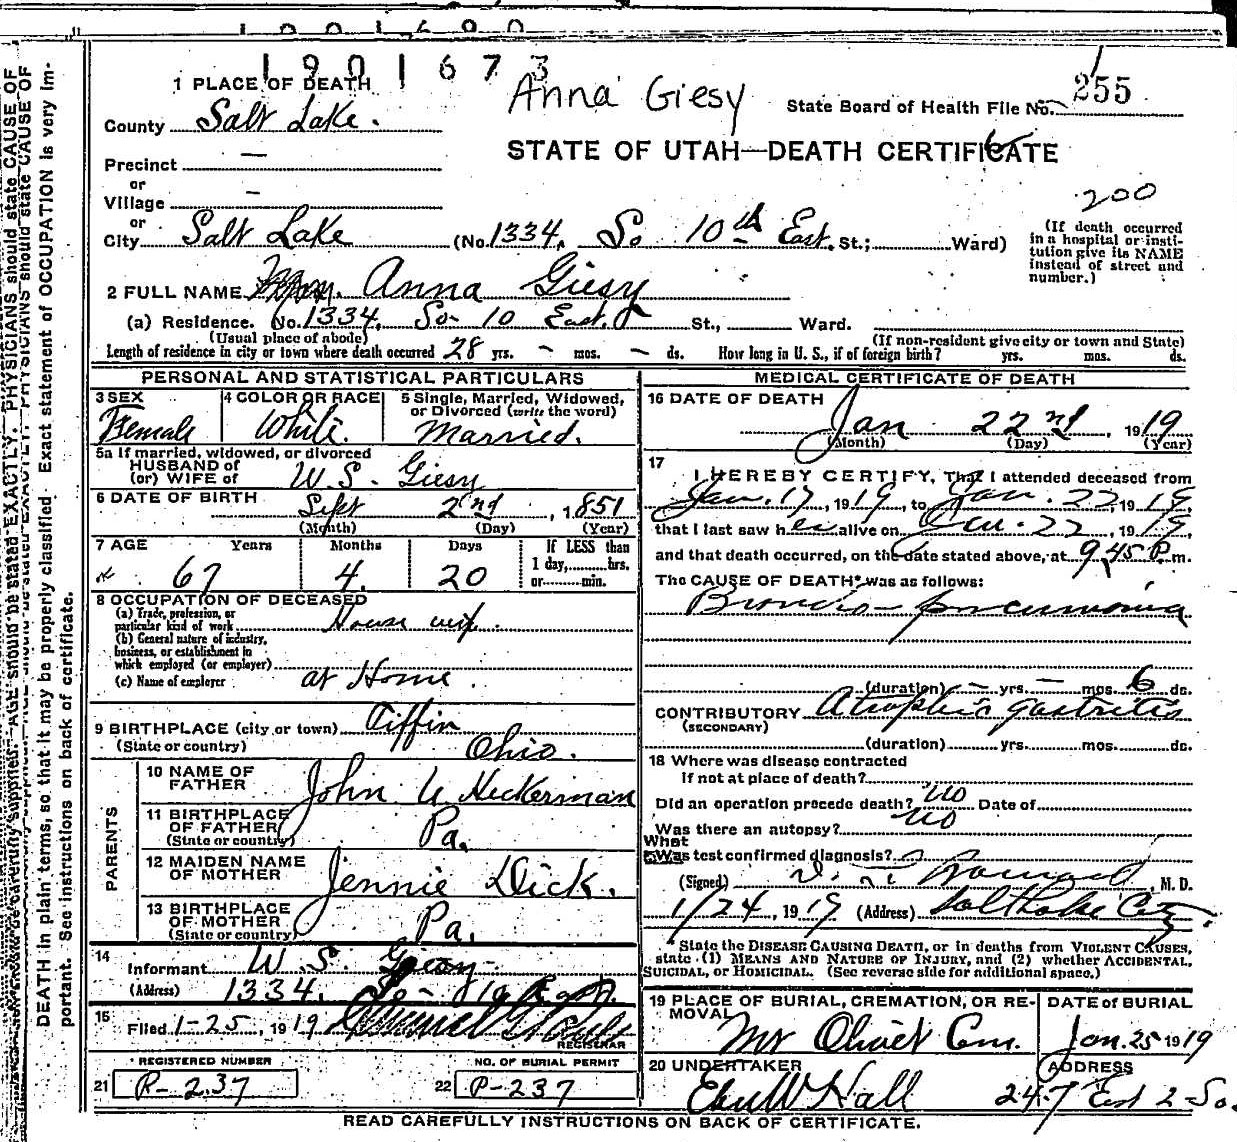 1901673
Anna Giesy
1 PLACE OF DEATH
State Board of Health File No. 255
County Salt Lake.
STATE OF UTAH—DEATH CERTIFICATE
Precinct —
or
Village —
200
or
City Salt Lake (No. 1334, So 10th East. St.; Ward)
(If death occurred in a hospital or institution give its NAME instead of street and number.)
2 FULL NAME Anna Giesy
(a) Residence. No. 1334, So- 10 East. St., Ward.
(Usual place of abode) (If non-resident give city or town and State)
Length of residence in city or town where death occurred 28 yrs. — mos. — ds. How long in U. S., if of foreign birth? yrs. mos. ds.
PERSONAL AND STATISTICAL PARTICULARS
3 SEX Female
4 COLOR OR RACE White.
5 Single, Married, Widowed, or Divorced (write the word) Married.
5a If married, widowed, or divorced
HUSBAND of
(or) WIFE of W. S. Giesy
6 DATE OF BIRTH Sept 2nd, 1851
(Month) (Day) (Year)
7 AGE Years Months Days If LESS than
1 day, hrs.
67 4. 20 or min.
8 OCCUPATION OF DECEASED
(a) Trade, profession, or
particular kind of work House wife.
(b) General nature of industry,
business, or establishment in
which employed (or employer)
(c) Name of employer at Home.
9 BIRTHPLACE (city or town) Tiffin
(State or country) Ohio.
PARENTS
10 NAME OF
FATHER John U Heckerman
11 BIRTHPLACE
OF FATHER
(State or country) Pa.
12 MAIDEN NAME
OF MOTHER Jennie Dick.
13 BIRTHPLACE
OF MOTHER
(State or country) Pa.
14
Informant W. S. Giesy
(Address) 1334. So- 10 East
15
Filed 1-25, 1919
REGISTRAR
REGISTERED NUMBER
21 P-237
NO. OF BURIAL PERMIT
22 P-237
MEDICAL CERTIFICATE OF DEATH
16 DATE OF DEATH
Jan 22nd, 1919
(Month) (Day) (Year)
17
I HEREBY CERTIFY, That I attended deceased from
Jan. 17, 1919, to Jan. 22, 1919,
that I last saw her alive on Jan. 22, 1919,
and that death occurred, on the date stated above, at 9,45 P. m.
The CAUSE OF DEATH* was as follows:
Broncho-pneumonia
(duration) — yrs. — mos. 6 ds.
CONTRIBUTORY Atrophic gastritis
(SECONDARY)
(duration) yrs. mos. ds.
18 Where was disease contracted
if not at place of death?
Did an operation precede death? no Date of
Was there an autopsy? no
What
test confirmed diagnosis?
(Signed) , M. D.
1/24, 1919 (Address) Salt Lake City.
*State the DISEASE CAUSING DEATH, or in deaths from VIOLENT CAUSES,
state (1) MEANS AND NATURE OF INJURY, and (2) whether ACCIDENTAL,
SUICIDAL, or HOMICIDAL. (See reverse side for additional space.)
19 PLACE OF BURIAL, CREMATION, OR REMOVAL
Mt Olivet Cem.
DATE of BURIAL
Jan. 25 1919
20 UNDERTAKER
Eber W Hall
ADDRESS
247 East 2-So.
READ CAREFULLY INSTRUCTIONS ON BACK OF CERTIFICATE.
AGE should be stated EXACTLY. PHYSICIANS should state CAUSE OF
DEATH in plain terms, so that it may be properly classified. Exact statement of OCCUPATION is very im-
portant. See instructions on back of certificate.